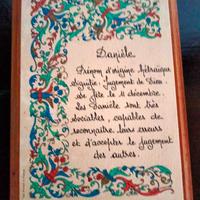 Danièle
Prénom d'origine hébraïque
signifie : Jugement de Dieu
se fête le 11 décembre.
Les Danièle sont très
sociables, capables de
reconnaître leurs erreurs
et d'accepter le jugement
des autres.